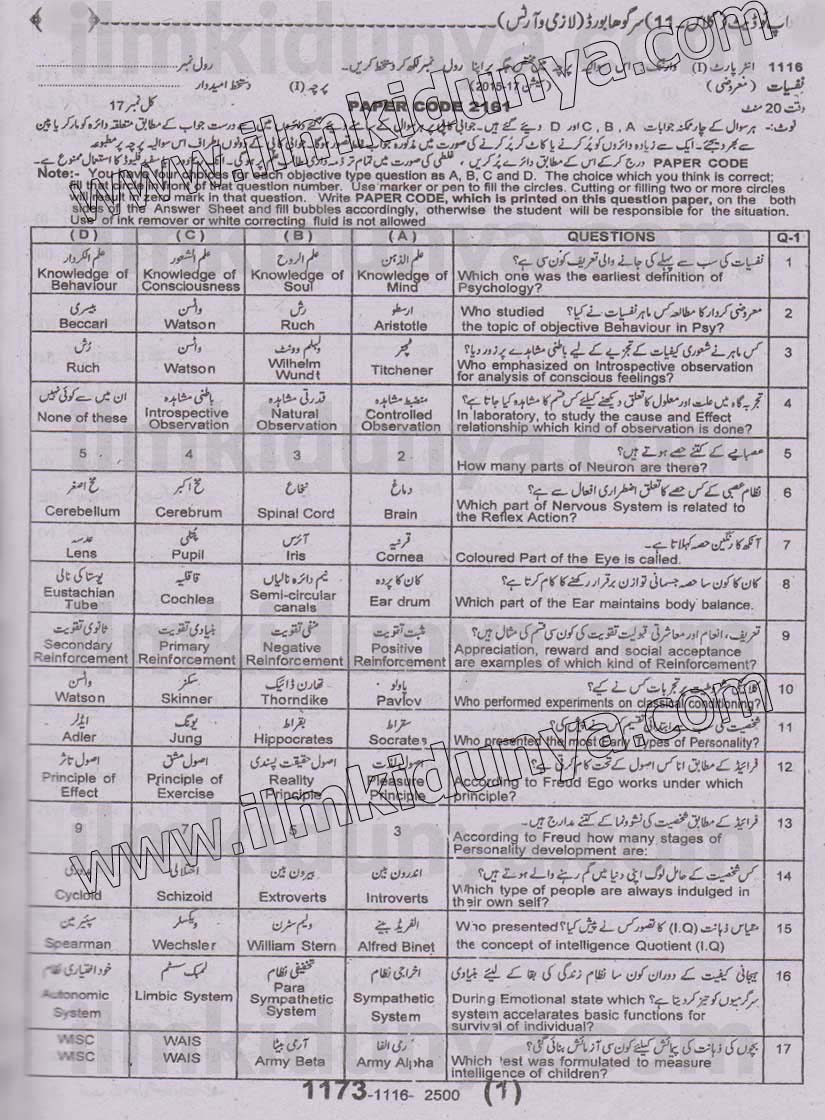 سرگودھا بورڈ (لازمی و آرٹس)
1116 انٹر پارٹ (I)
رول نمبر
نفسیات (معروضی) (سیشن 17-2015) پرچہ (I) دستخط امیدوار
وقت 20 منٹ PAPER CODE 2161 کل نمبر 17
PAPER CODE
Note:- You have four choices for each objective type question as A, B, C and D. The choice which you think is correct;
fill that circle in front of that question number. Use marker or pen to fill the circles. Cutting or filling two or more circles
will result in zero mark in that question. Write PAPER CODE, which is printed on this question paper, on the both
sides of the Answer Sheet and fill bubbles accordingly, otherwise the student will be responsible for the situation.
Use of ink remover or white correcting fluid is not allowed
(D) (C) (B) (A) QUESTIONS Q-1
علم الکردار علم الشعور علم الروح علم الذہن نفسیات کی سب سے پہلے کی جانے والی تعریف کون سی ہے؟ 1
Knowledge of Behaviour Knowledge of Consciousness Knowledge of Soul Knowledge of Mind Which one was the earliest definition of Psychology?
بیسری واٹسن رش ارسطو معروضی کردار کا مطالعہ کس ماہر نفسیات نے کیا؟ 2
Beccari Watson Ruch Aristotle Who studied the topic of objective Behaviour in Psy?
رش واٹسن ولہلم وونٹ ٹچنر کس ماہر نے شعوری کیفیات کے تجزیے کے لیے باطنی مشاہدے پر زور دیا؟ 3
Ruch Watson Wilhelm Wundt Titchener Who emphasized on Introspective observation for analysis of conscious feelings?
ان میں سے کوئی نہیں باطنی مشاہدہ قدرتی مشاہدہ منضبط مشاہدہ تجربہ گاہ میں علت اور معلول کا تعلق دیکھنے کیلئے کس قسم کا مشاہدہ کیا جاتا ہے؟ 4
None of these Introspective Observation Natural Observation Controlled Observation In laboratory, to study the cause and Effect relationship which kind of observation is done?
5 4 3 2 عصبانیے کے کتنے حصے ہوتے ہیں؟ 5
How many parts of Neuron are there?
مخ اصغر مخ اکبر نخاع دماغ نظام عصبی کے کس حصے کا تعلق اضطراری افعال سے ہے؟ 6
Cerebellum Cerebrum Spinal Cord Brain Which part of Nervous System is related to the Reflex Action?
عدسہ پتلی آئرس قرنیہ آنکھ کا رنگین حصہ کہلاتا ہے۔ 7
Lens Pupil Iris Cornea Coloured Part of the Eye is called.
یوسٹا کی نالی قاقلیہ نیم دائرہ نالیاں کان کا پردہ کان کا کون سا حصہ جسمانی توازن برقرار رکھنے کا کام کرتا ہے؟ 8
Eustachian Tube Cochlea Semi-circular canals Ear drum Which part of the Ear maintains body balance.
ثانوی تقویت بنیادی تقویت منفی تقویت مثبت تقویت تعریف، انعام اور معاشرتی قبولیت تقویت کی کون سی قسم کی مثال ہیں؟ 9
Secondary Reinforcement Primary Reinforcement Negative Reinforcement Positive Reinforcement Appreciation, reward and social acceptance are examples of which kind of Reinforcement?
واٹسن سکنر تھارن ڈائیک پاولو پر تجربات کس نے کیے؟ 10
Watson Skinner Thorndike Pavlov Who performed experiments on classical conditioning?
ایڈلر یونگ بقراط سقراط شخصیت کی 11
Adler Jung Hippocrates Socrates Who presented the most Early Types of Personality?
اصول تاثر اصول مشق اصول حقیقت پسندی فرائیڈ کے مطابق انا کس اصول کے تحت کام کرتی ہے؟ 12
Principle of Effect Principle of Exercise Reality Principle Pleasure Principle According to Freud Ego works under which principle?
9 7 5 3 فرائیڈ کے مطابق شخصیت کی نشوونما کے کتنے مدارج ہیں۔ 13
According to Freud how many stages of Personality development are:
بیرون بین اندرون بین کس شخصیت کے حامل لوگ اپنی دنیا میں گم رہنے والے ہوتے ہیں؟ 14
Cycloid Schizoid Extroverts Introverts Which type of people are always indulged in their own self?
سپیئر مین ویکسلر ولیم سٹرن الفریڈ بینے مقیاس ذہانت (I.Q) کا تصور کس نے پیش کیا؟ 15
Spearman Wechsler William Stern Alfred Binet Who presented the concept of intelligence Quotient (I.Q)
خود اختیاری نظام لمبک سسٹم تخفیفی نظام اخراجی نظام ہیجانی کیفیت کے دوران کون سا نظام زندگی کی بقا کے لیئے بنیادی سرگرمیوں کو تیز کر دیتا ہے؟ 16
Autonomic System Limbic System Para Sympathetic System Sympathetic System During Emotional state which system accelarates basic functions for survival of individual?
WISC WAIS آرمی بیٹا آرمی الفا بچوں کی ذہانت کی پیمائش کیلئے کون سی آزمائش بنائی گئی؟ 17
WISC WAIS Army Beta Army Alpha Which test was formulated to measure intelligence of children?
1173-1116- 2500 (1)
www.ilmkidunya.com
www.ilmkidunya.com